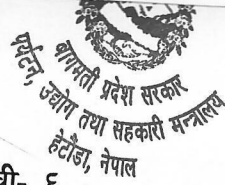 बागमती प्रदेश सरकार
पर्यटन, उद्योग तथा सहकारी मन्त्रालय
हेटौंडा, नेपाल
वी- ६